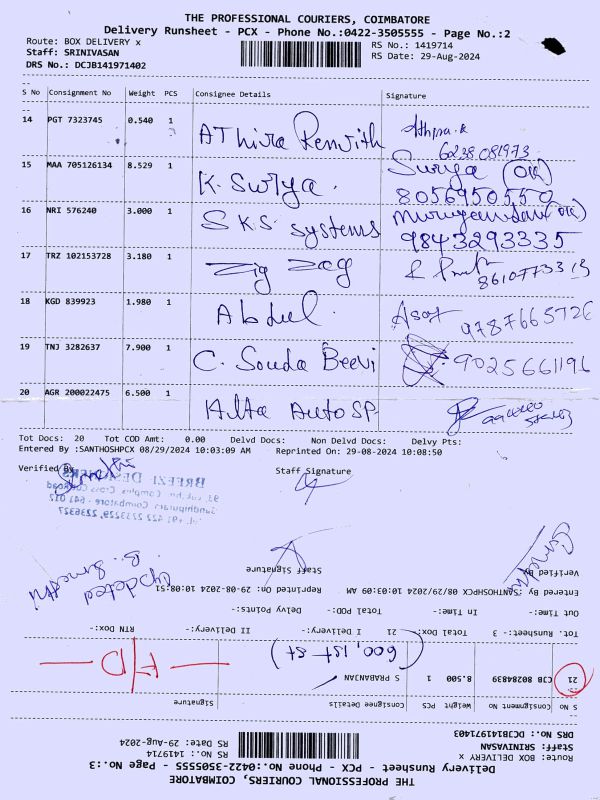 THE PROFESSIONAL COURIERS, COIMBATORE
Delivery Runsheet - PCX - Phone No.:0422-3505555 - Page No.:2
Route: BOX DELIVERY x
RS No.: 1419714
Staff: SRINIVASAN
RS Date: 29-Aug-2024
DRS No.: DCJB141971402
S No Consignment No Weight PCS Consignee Details Signature
14 PGT 7323745 0.540 1 AThira Renvith Athira.R
6238 081973
15 MAA 705126134 8.529 1 K. Surya. Surya (Oll)
8056950550
16 NRI 576240 3.000 1 SKS Systems
9843293335
17 TRZ 102153728 3.180 1 Zig Zag
18 KGD 839923 1.980 1 Abdul. 9787665726
19 TNJ 3282637 7.900 1 C. Souda Beevi 9025661196
20 AGR 200022475 6.500 1 Auto SP
Tot Docs: 20 Tot COD Amt: 0.00 Delvd Docs: Non Delvd Docs: Delvy Pts:
Entered By :SANTHOSHPCX 08/29/2024 10:03:09 AM Reprinted On: 29-08-2024 10:08:50
Verified By
Staff Signature
BREEZI DESIGNERS
Gandhipuram, Coimbatore - 641 012
Tel: +91 422 2233229, 2236327
THE PROFESSIONAL COURIERS, COIMBATORE
Delivery Runsheet - PCX - Phone No.:0422-3505555 - Page No.:3
Route: BOX DELIVERY x
RS No.: 1419714
Staff: SRINIVASAN
RS Date: 29-Aug-2024
DRS No.: DCJB141971403
S No Consignment No Weight PCS Consignee Details Signature
21 CJB 80284839 8.500 1 S PRABANJAN
(600, 1st St)
F/D
Tot. Runsheet:- 3 Total Dox: 21 I Delivery:- II Delivery:- RTN Dox:-
Out Time:- In Time:- Total POD:- Delvy Points:-
Entered By :SANTHOSHPCX 08/29/2024 10:03:09 AM Reprinted On: 29-08-2024 10:08:51
Verified By
Staff Signature
Updated